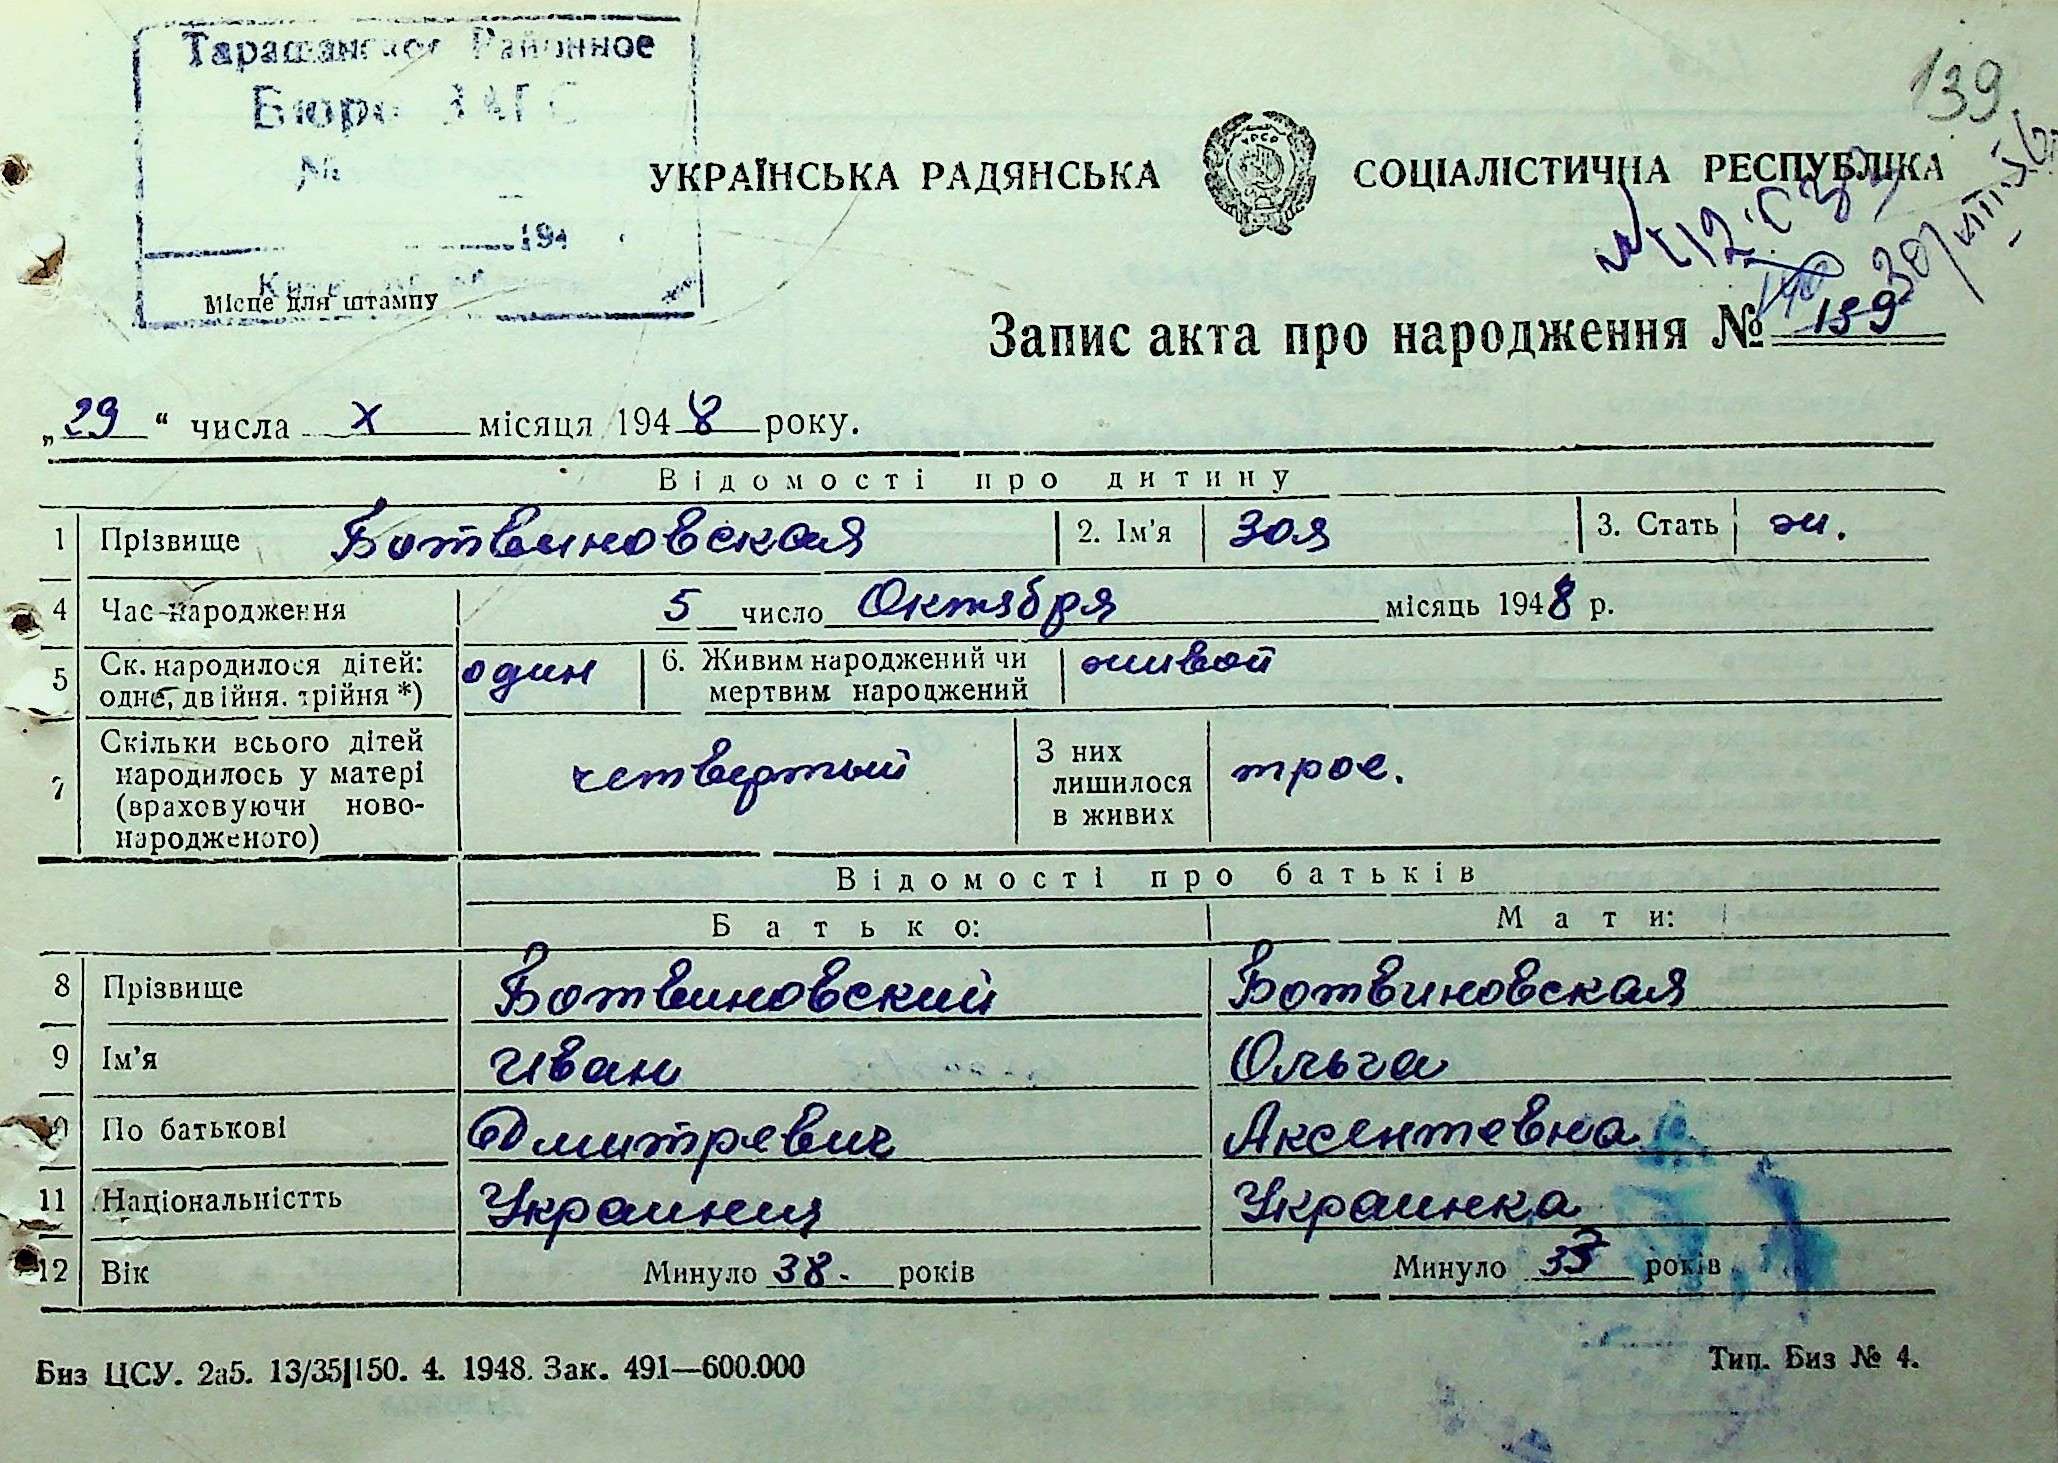 Таращанское Районное
Бюро ЗАГС
№
194
Місце для штампу
139
УКРАЇНСЬКА РАДЯНСЬКА СОЦІАЛІСТИЧНА РЕСПУБЛІКА
Запис акта про народження № 139
„29“ числа X місяця 1948 року.
Відомості про дитину
1 Прізвище Ботвиновская 2. Ім'я Зоя 3. Стать ж.
4 Час народження 5 число Октября місяць 1948 р.
5 Ск. народилося дітей: один 6. Живим народжений чи живой
одне, двійня. трійня *) мертвим народжений
7 Скільки всього дітей
народилось у матері четвертый З них лишилося в живих трое.
(враховуючи ново-
народженого)
Відомості про батьків
Батько: Мати:
8 Прізвище Ботвиновский Ботвиновская
9 Ім'я Иван Ольга
10 По батькові Дмитревич Аксентевна
11 Національністть Украинец Украинка
12 Вік Минуло 38. років Минуло років
Биз ЦСУ. 2а5. 13/35|150. 4. 1948. Зак. 491—600.000
Тип. Биз № 4.